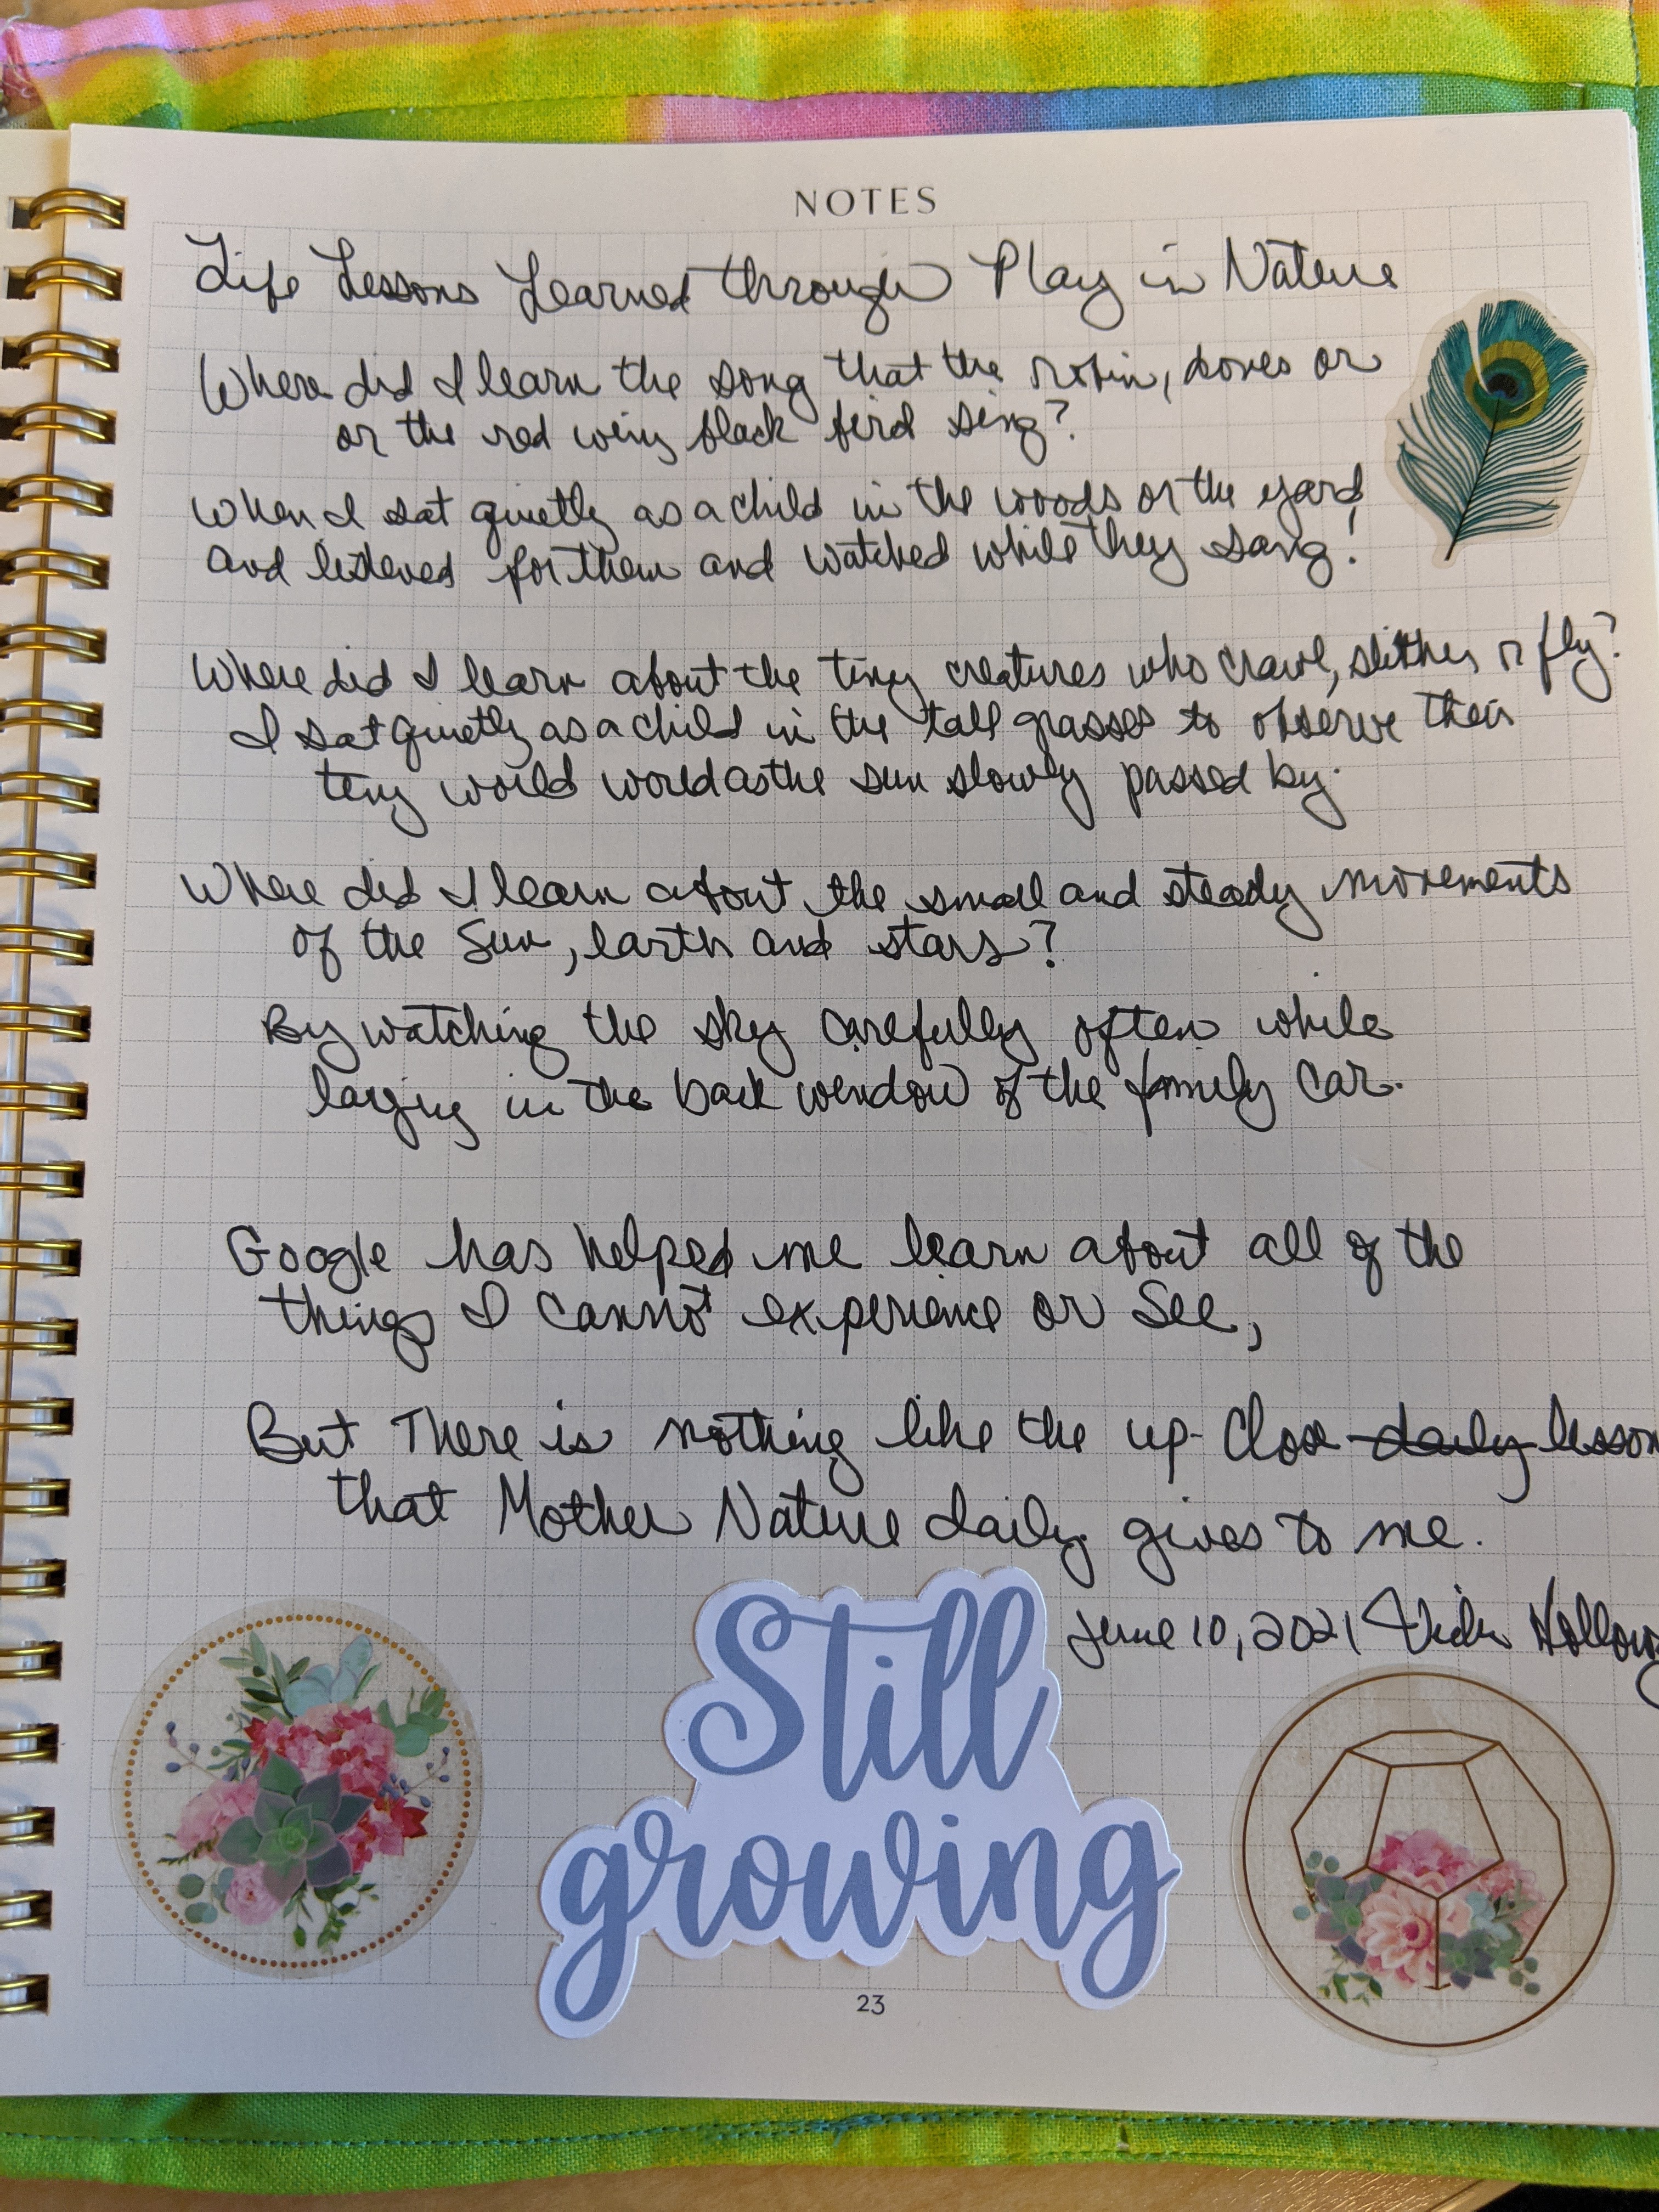 NOTES
Life Lessons Learned through Play in Nature
Where did I learn the song that the robin, doves or
or the red wing black bird sing?
When I sat quietly as a child in the woods or the yard
and listened for them and watched while they sang!
Where did I learn about the tiny creatures who crawl, slither or fly?
I sat quietly as a child in the tall grasses to observe their
tiny world world as the sun slowly passed by.
Where did I learn about the small and steady movements
of the Sun, earth and stars?
By watching the sky carefully often while
laying in the back window of the family car.
Google has helped me learn about all of the
things I cannot experience or see,
But There is nothing like the up-close daily lesson
that Mother Nature daily gives to me.
June 10, 2021 Vicki Holloway
Still
growing
23